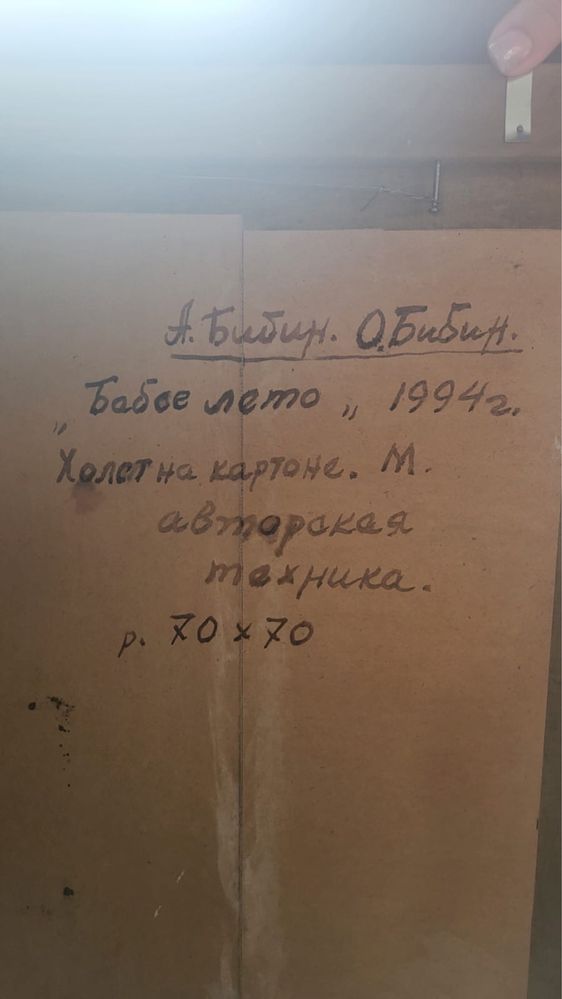 А. Бибин. О. Бибин.
„Бабье лето„ 1994 г.
Холст на картоне. М.
авторская
техника.
р. 70 х 70